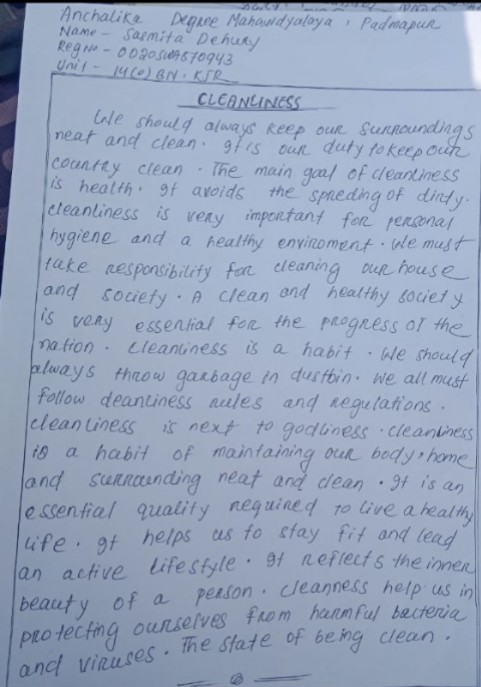 Anchalika Degree Mahavidyalaya, Padmapur
Name - Sasmita Dehury
Reg No -
Unit - 14(O) BN. KJR
CLEANLINESS
We should always keep our surroundings
neat and clean. It is our duty to keep our
country clean. The main goal of cleanliness
is health. It avoids the spreding of dirty.
cleanliness is very important for personal
hygiene and a healthy enviroment. We must
take responsibility for cleaning our house
and society. A clean and healthy society
is very essential for the progress of the
nation. Cleanliness is a habit. We should
always throw garbage in dustbin. We all must
follow cleanliness rules and regulations.
cleanliness is next to godliness. cleanliness
is a habit of maintaining our body, home
and surrounding neat and clean. It is an
essential quality required to live a healthy
life. It helps us to stay fit and lead
an active lifestyle. It reflects the inner
beauty of a person. cleanness help us in
protecting ourselves from harmful bacteria
and viruses. The state of being clean.